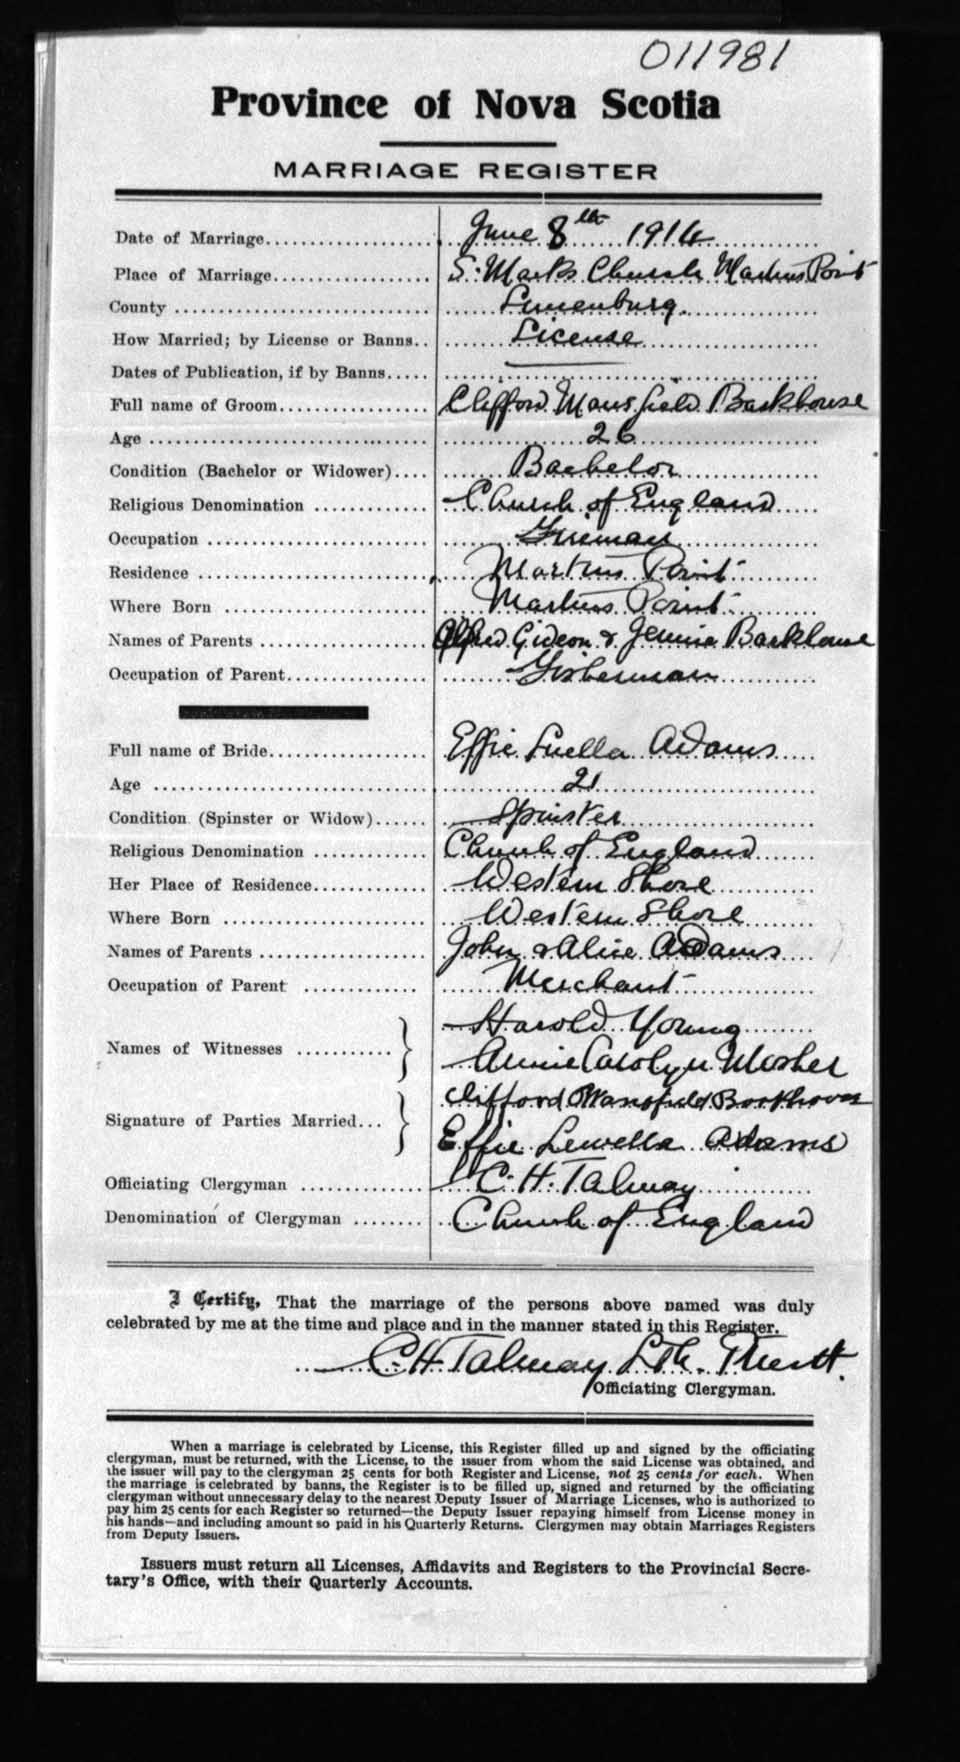 011981
Province of Nova Scotia
MARRIAGE REGISTER
Date of Marriage June 8th 1914
Place of Marriage S. Marks Church Martins Point
County Lunenburg
How Married; by License or Banns License
Dates of Publication, if by Banns
Full name of Groom Clifford Mansfield Backhouse
Age 26
Condition (Bachelor or Widower) Bachelor
Religious Denomination Church of England
Occupation Fireman
Residence Martins Point
Where Born Martins Point
Names of Parents Alfred Gideon & Jennie Backhouse
Occupation of Parent Fisherman
Full name of Bride Effie Luella Adams
Age 21
Condition (Spinster or Widow) Spinster
Religious Denomination Church of England
Her Place of Residence Western Shore
Where Born Western Shore
Names of Parents John & Alice Adams
Occupation of Parent Merchant
Harold Young
Names of Witnesses
Annie Carolyn Mosher
Clifford Mansfield Backhouse
Signature of Parties Married
Effie Lewella Adams
Officiating Clergyman C. H. Talmay
Denomination of Clergyman Church of England
I Certify, That the marriage of the persons above named was duly
celebrated by me at the time and place and in the manner stated in this Register.
C. H. Talmay L. Th.
Officiating Clergyman.
When a marriage is celebrated by License, this Register filled up and signed by the officiating
clergyman, must be returned, with the License, to the issuer from whom the said License was obtained, and
the issuer will pay to the clergyman 25 cents for both Register and License, not 25 cents for each. When
the marriage is celebrated by banns, the Register is to be filled up, signed and returned by the officiating
clergyman without unnecessary delay to the nearest Deputy Issuer of Marriage Licenses, who is authorized to
pay him 25 cents for each Register so returned—the Deputy Issuer repaying himself from License money in
his hands—and including amount so paid in his Quarterly Returns. Clergymen may obtain Marriages Registers
from Deputy Issuers.
Issuers must return all Licenses, Affidavits and Registers to the Provincial Secre-
tary's Office, with their Quarterly Accounts.